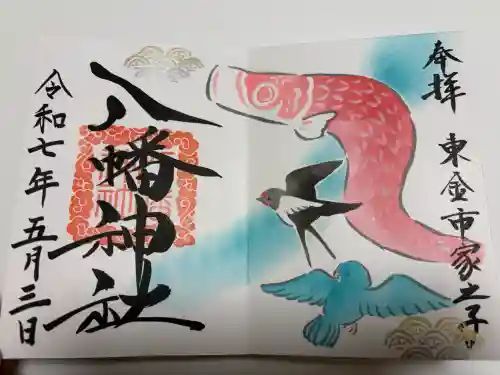 奉拝
東金市家之子
八幡神社
令和七年五月三日